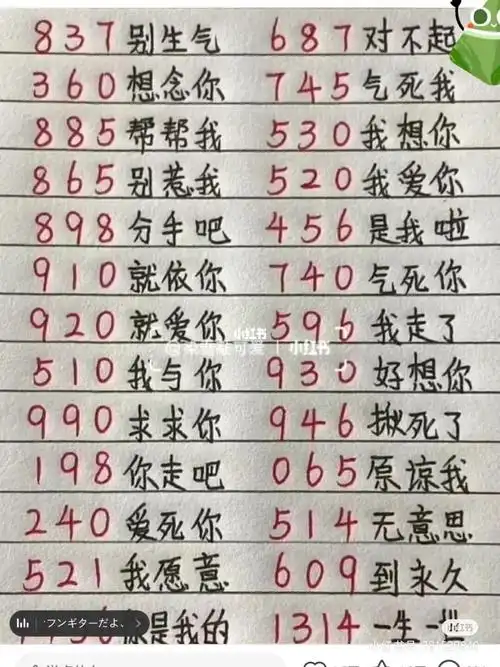 837 别生气 687 对不起
360 想念你 745 气死我
885 帮帮我 530 我想你
865 别惹我 520 我爱你
898 分手吧 456 是我啦
910 就依你 740 气死你
920 就爱你 596 我走了
小红书
小红书
510 我与你 930 好想你
990 求求你 946 揪死了
198 你走吧 065 原谅我
240 爱死你 514 无意思
521 我愿意 609 到永久
是我的 1314 一生一世
フンギターだよ、
小红书